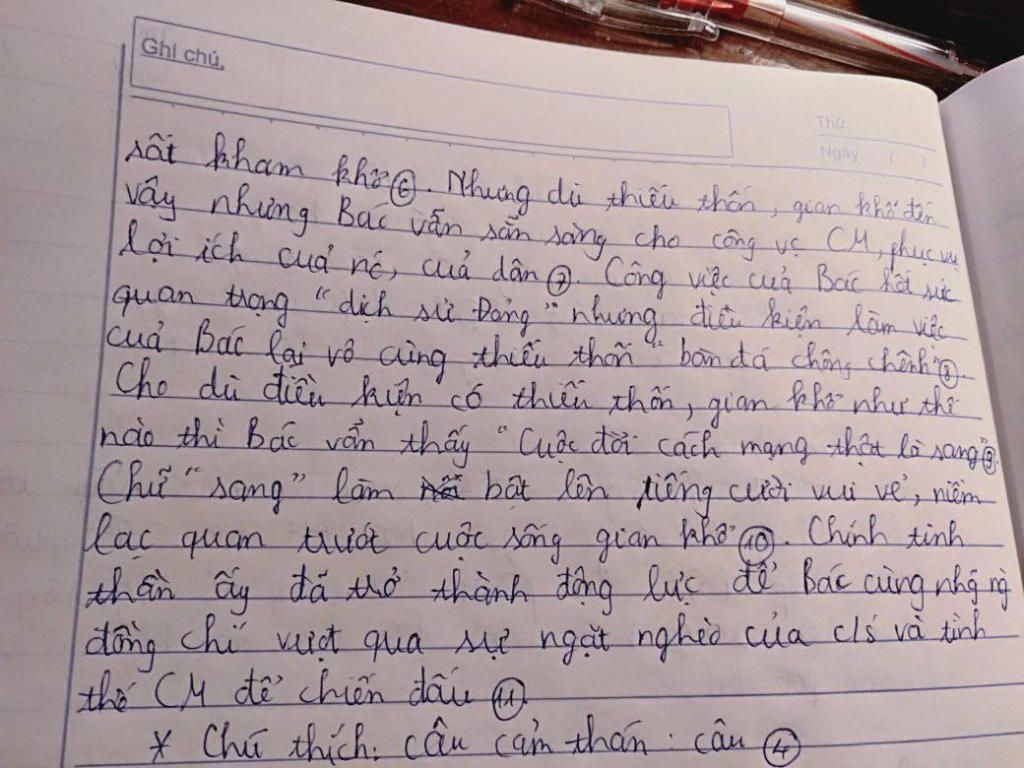 Ghi chú.
Thứ
Ngày / /
sất kham khổ ⑥. Nhưng dù thiếu thốn, gian khổ đến
vây nhưng Bác vẫn sẵn sàng cho công vc CM, phục vụ
lợi ích cuả nc, cuả dân ⑦. Công việc cuả Bác hết sức
quan trọng "dịch sử Đảng" nhưng điều kiện làm việc
cuả Bác lại vô cùng thiếu thốn "bàn đá chông chênh" ⑧
Cho dù điều kiện có thiếu thốn, gian khổ như thế
nào thì Bác vẫn thấy "Cuộc đời cách mạng thật là sang" ⑨.
Chữ "sang" làm bật lên tiếng cười vui vẻ, niềm
lạc quan trước cuộc sống gian khổ ⑩. Chính tinh
thần ấy đã trở thành động lực để Bác cùng nhg ng
đồng chí vượt qua sự ngặt nghèo của c/s và tình
thế CM để chiến đấu ⑪.
* Chú thích: câu cảm thán: câu ④